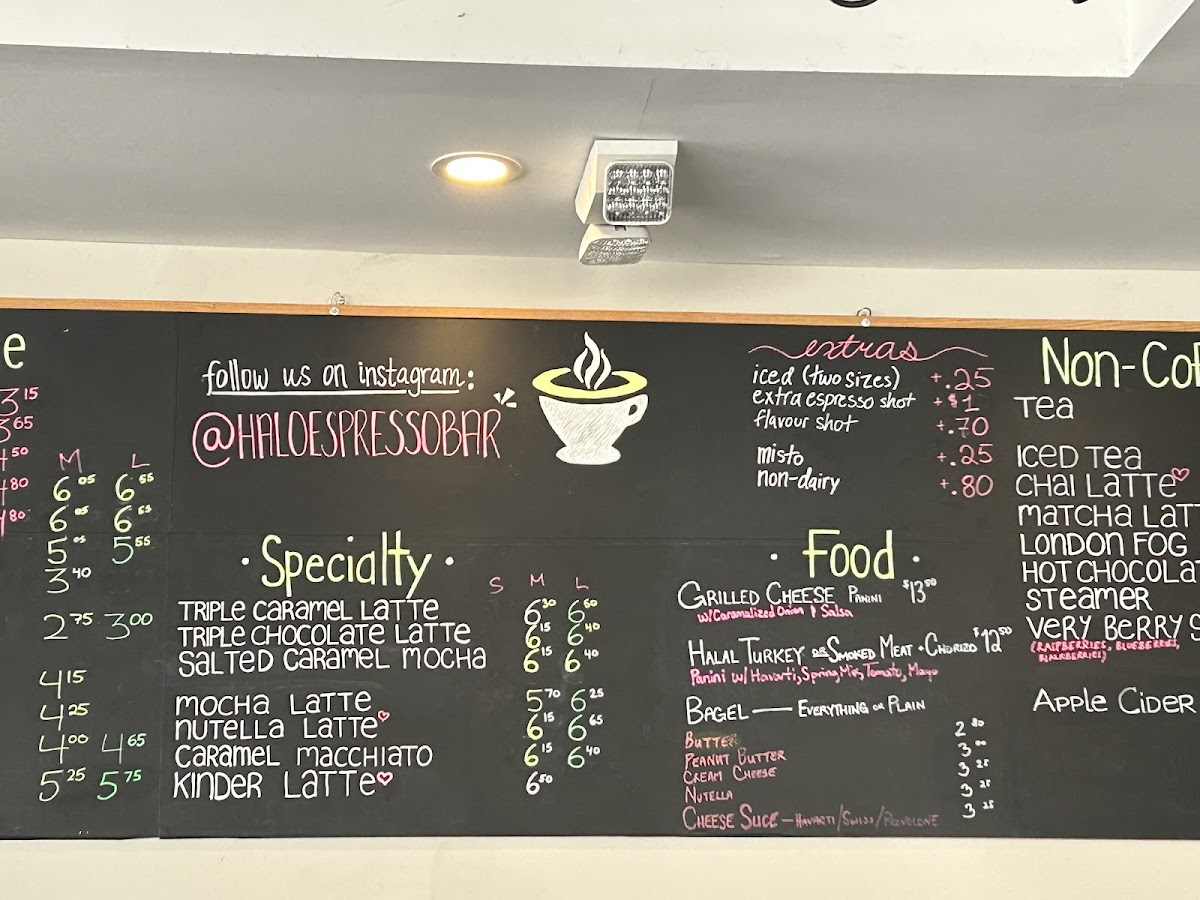 e
3.15
3.65
4.50
4.80
4.80
M L
6.05 6.55
6.05 6.55
5.05 5.55
3.40
2.75 3.00
4.15
4.25
4.00 4.65
5.25 5.75
follow us on instagram:
@HALOESPRESSOBAR
· Specialty ·
S M L
TRIPLE CARAMEL LATTE 6.30 6.60
TRIPLE CHOCOLATE LATTE 6.15 6.40
SALTED CARAMEL MOCHA 6.15 6.40
MOCHA LATTE 5.70 6.25
NUTELLA LATTE 6.15 6.65
CARAMEL MACCHIATO 6.15 6.40
KINDER LATTE 6.50
extras
iced (two sizes) +.25
extra espresso shot +$1
flavour shot +.70
misto +.25
non-dairy +.80
· Food ·
GRILLED CHEESE PANINI $13.50
w/Caramalized Onion & Salsa
HALAL TURKEY OR SMOKED MEAT + CHORIZO $12.50
Panini w/ Havarti, Spring Mix, Tomato, Mayo
BAGEL — EVERYTHING OR PLAIN
BUTTER 2.80
PEANUT BUTTER 3.00
CREAM CHEESE 3.25
NUTELLA 3.25
CHEESE SLICE - HAVARTI/SWISS/PROVOLONE 3.25
Non-Cof
TEA
ICED TEA
CHAI LATTE
MATCHA LATT
LONDON FOG
HOT CHOCOLAT
STEAMER
VERY BERRY S
(RASPBERRIES, BLUEBERRIES,
BLACKBERRIES)
APPLE CIDER